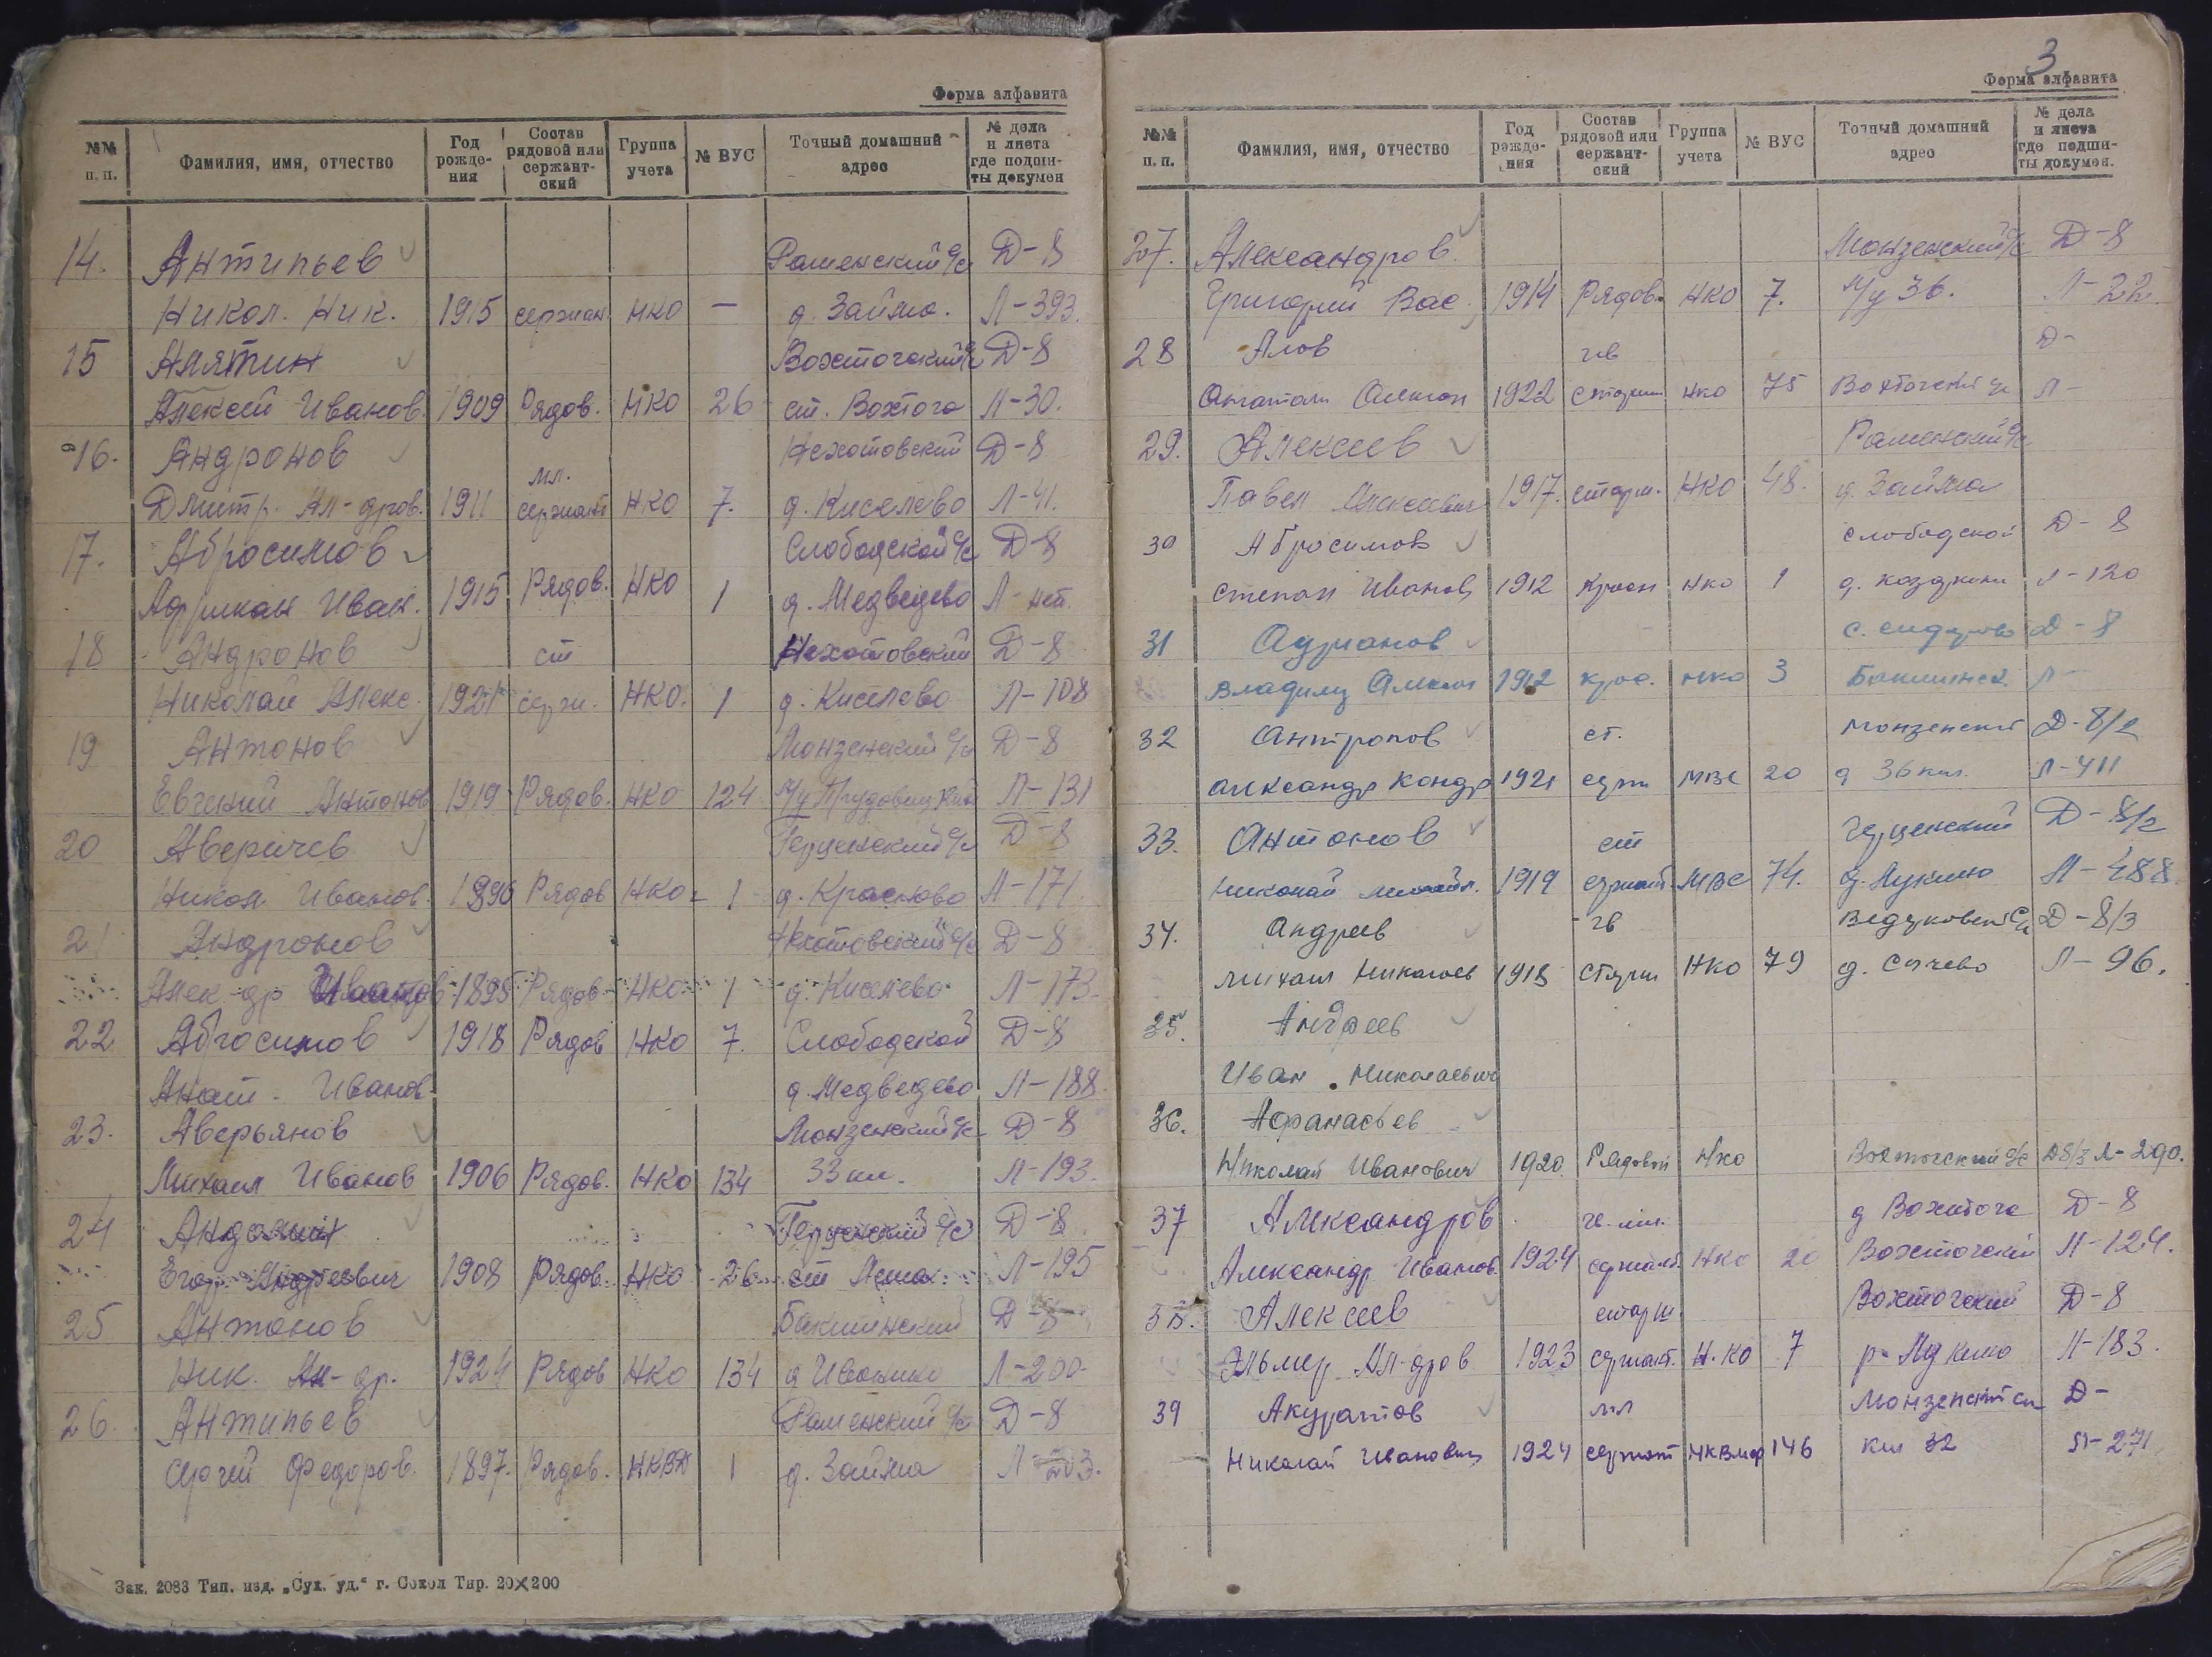 Форма алфавита
№№ п. п. Фамилия, имя, отчество Год рожде-ния Состав рядовой или сержант-ский Группа учета № ВУС Точный домашний адрес № дела и листа где подши-ты докумен
14. Антипьев Раменский с/с Д-8
Никол. Ник. 1915 сержан. НКО — д. Займа. Л-393.
15 Алятин Вохтогский с/с Д-8
Алексей Иванов. 1909 Рядов. НКО 26 ст. Вохтога Л-30.
16. Андронов мл. Нехотовский Д-8
Дмитр. Ал-дров. 1911 сержант НКО 7. д. Киселево Л-41.
17. Абросимов Слободской с/с Д-8
Африкан Иван. 1915 Рядов. НКО 1 д. Медведево Л-нет.
18 Андронов ст Нехотовский Д-8
Николай Алекс. 1921 серж. НКО. 1 д. Киселево Л-108
19 Антонов Монзенский с/с Д-8
Евгений Антонов 1919 Рядов. НКО 124 Л-131
20 Аверичев Герценский с/с Д-8
Никол. Иванов. 1896 Рядов НКО 1 д. Красново Л-171.
21 Андронов Нехотовский с/с Д-8
Алек-др Иванов 1895 Рядов НКО 1 д. Киселево Л-173.
22 Абросимов 1918 Рядов НКО 7. Слободской Д-8
Анат. Иванов. д. Медведево Л-188.
23. Аверьянов Монзенский с/с Д-8
Михаил Иванов 1906 Рядов. НКО 134 33 км. Л-193.
24 Герценский с/с Д-8.
Егор Андреевич 1908 Рядов. НКО 26 ст Лежа. Л-195
25 Антонов Бакшинский Д-8
Ник. Ал-др. 1924 Рядов НКО 134 д Ивонино Л-200
26. Антипьев Раменский с/с Д-8
Сергей Федоров. 1897. Рядов. НКВД 1 д. Займа Л-203.
Зак. 2083 Тип. изд. „Сух. уд.“ г. Сокол Тир. 20×200
3
Форма алфавита
№№ п. п. Фамилия, имя, отчество Год рожде-ния Состав рядовой или сержант-ский Группа учета № ВУС Точный домашний адрес № дела и листа где подши-ты докумен.
27. Александров Монзенский с/с Д-8
Григорий Вас. 1914 Рядов. НКО 7. 36. Л-22.
28 Алов гв Д-
1922 старш НКО 75 Вохтогский с/с Л-
29. Алексеев Раменский с/с
Павел Алексеевич 1917. старш. НКО 48. д. Займа
30 Абросимов слободской Д-8
степан Иванов 1912 НКО 1 Л-120
31 Адрианов Д-8
Владимир 1912 НКО 3 Бакшинск. Л-
32 Антропов ст. Монзенский Д-8/2
александр Кондр 1921 серж МВС 20 д 36 км. Л-411
33. Антонов ст Герценский Д-8/2
Николай Михайл. 1919 сержант МВС 74. д. Лукино Л-488.
34. Андреев гв Ведерковский с/с Д-8/3
Михаил Николаев 1918 Старш НКО 79 д. Сычево Л-96.
35. Андреев
Иван Николаевич
36. Афанасьев
Николай Иванович 1920. Рядовой НКО Вохтогский с/с Д8/3 Л-290.
37 Александров гв. мл. д Вохтога Д-8
Александр Иванов. 1924 сержант НКО 20 Вохтогский Л-124.
38. Алексеев старш. Вохтогский Д-8
Эльмир Ал-дров 1923 сержант. Н.КО 7 Л-183.
39 Акуратов мл Монзенский с/с Д-
Николай Иванович 1924 сержант НКВМФ 146 км 32 Л-271